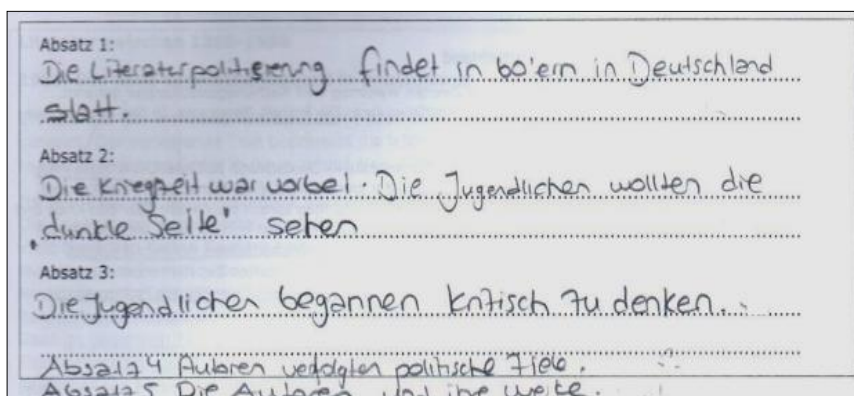 Absatz 1:
Die Literaturpolitisierung findet in 60'ern in Deutschland
statt.
Absatz 2:
Die Kriegzeit war vorbei. Die Jugendlichen wollten die
"dunkle Seite" sehen
Absatz 3:
Die Jugendlichen begannen kritisch zu denken.
Absatz 4 Autoren verfolgten politische Ziele.
Absatz 5 Die Autoren und ihre Werke.